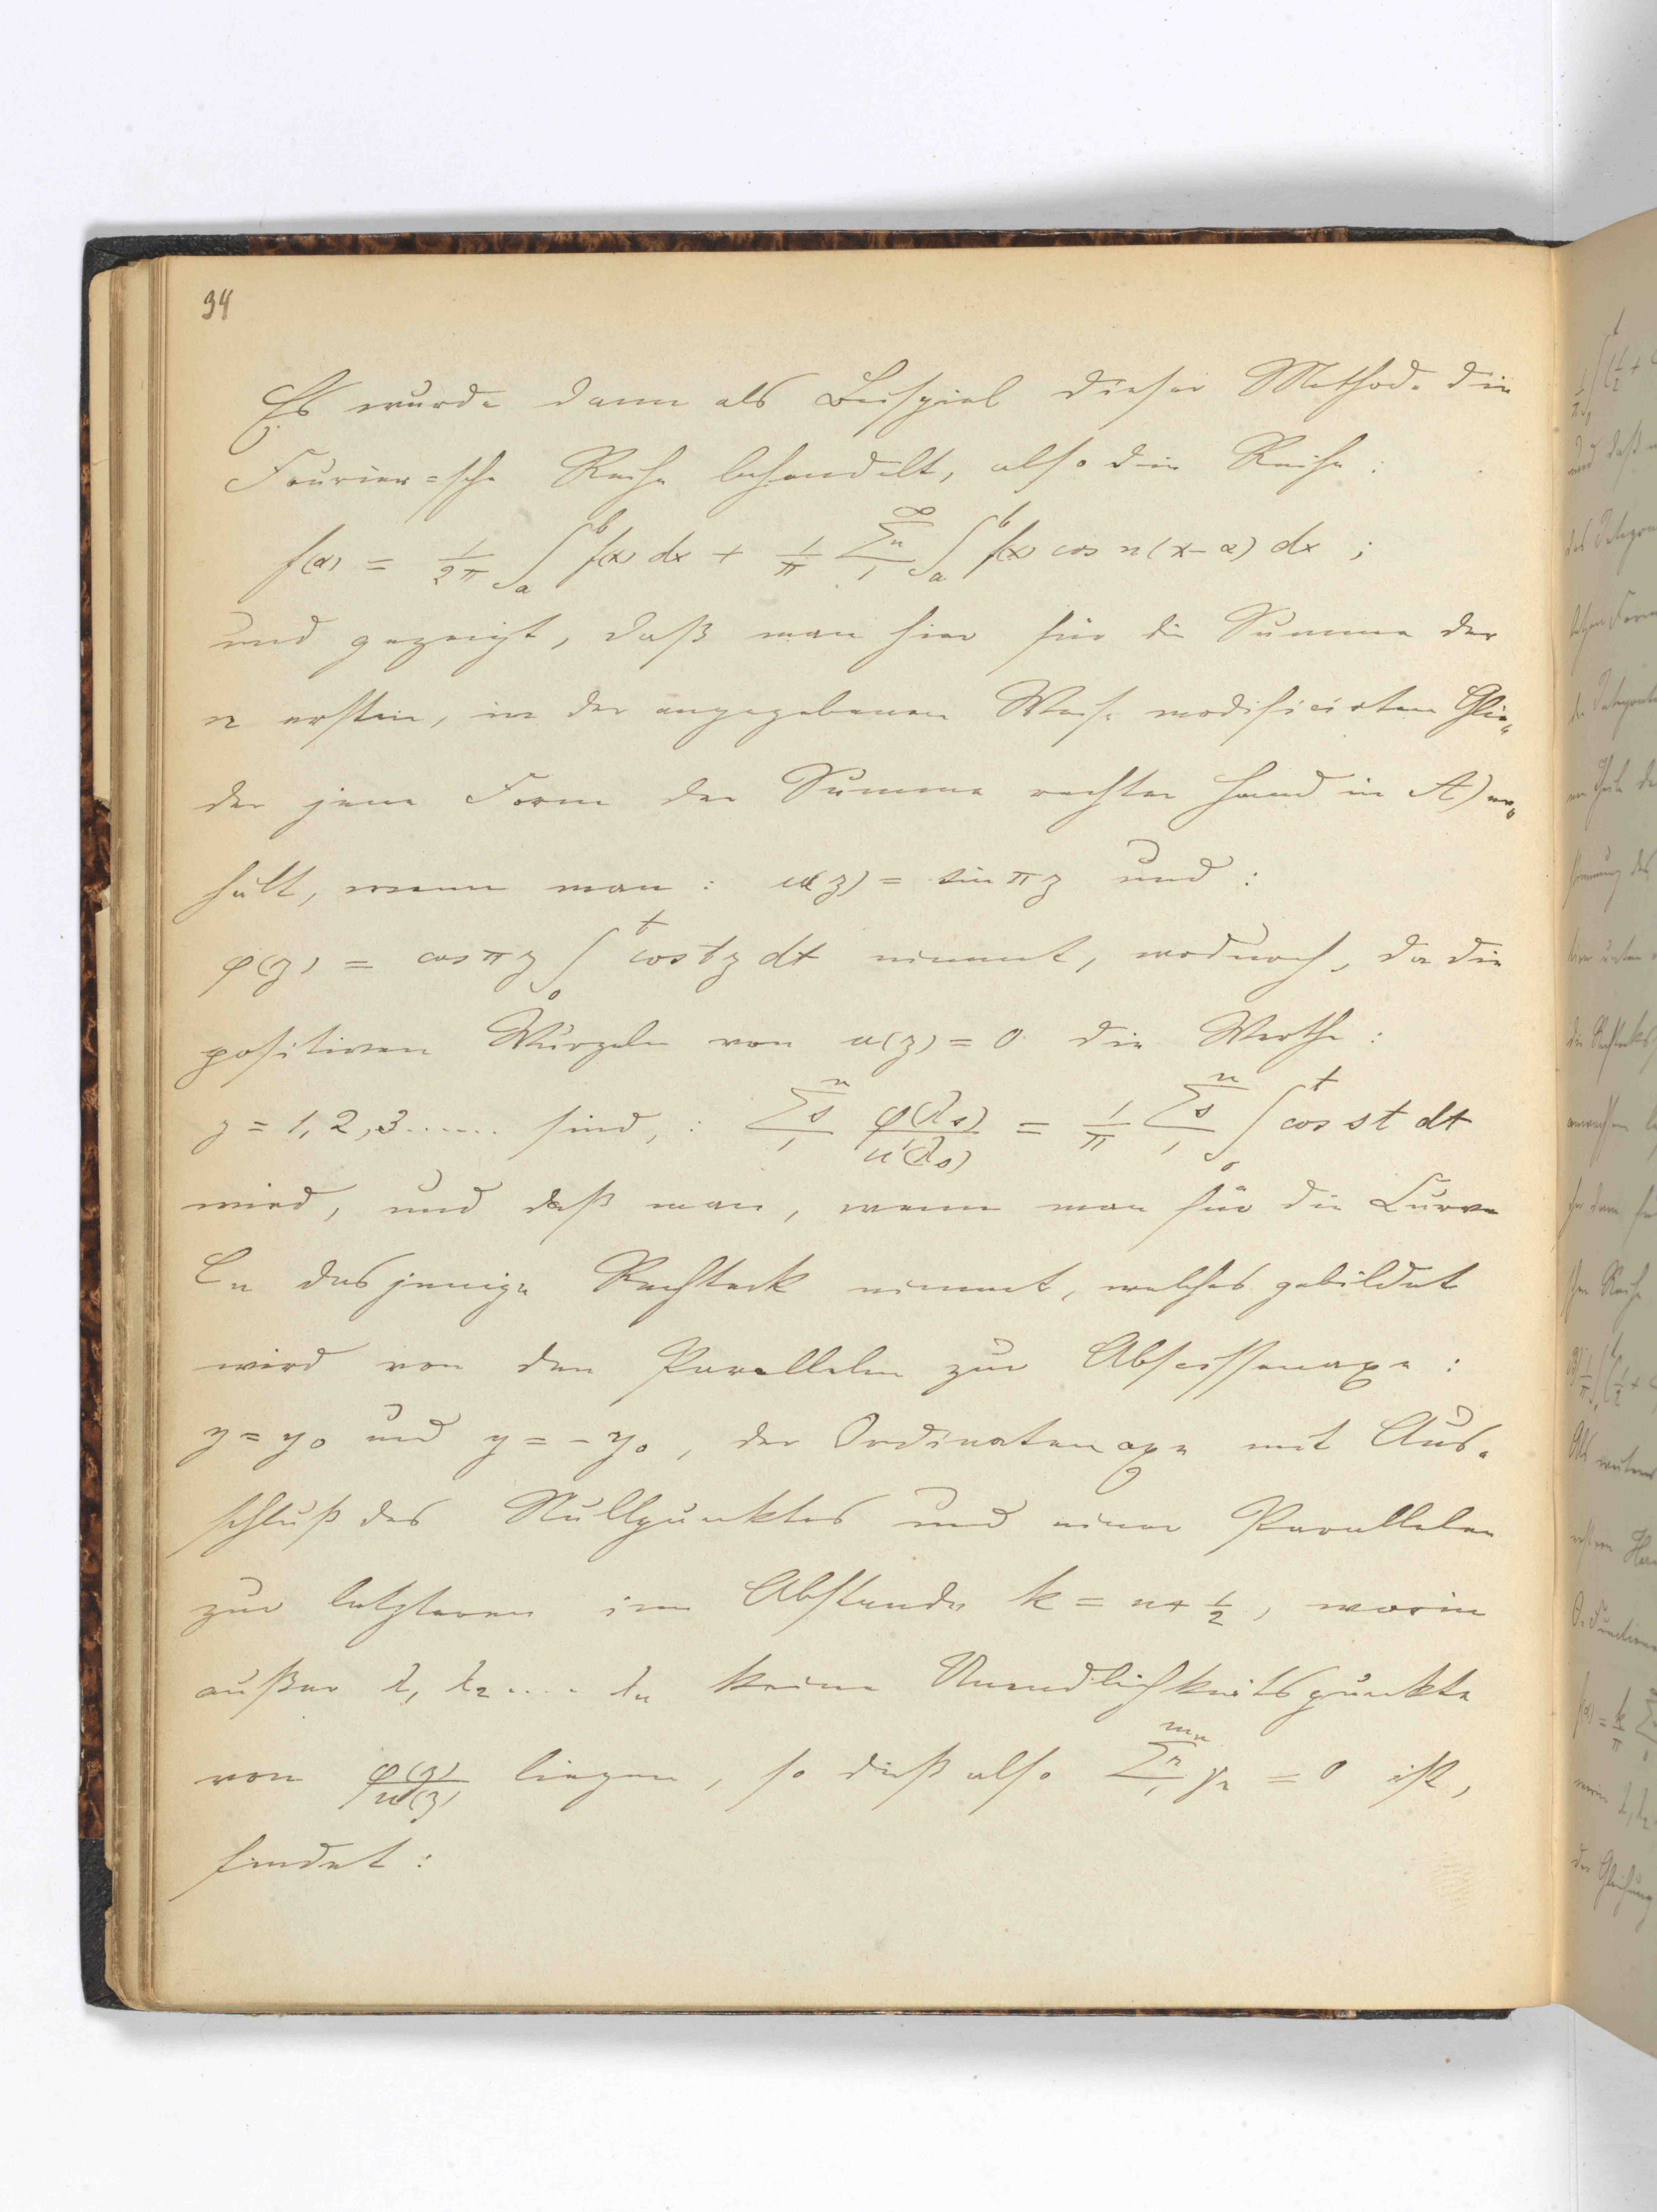 94
Es wurde dann als Beispiel dieser Methode die
Fourier=sche Reihe behandelt, also die Reihe:
f(α) = 1/2π ∫_a^b f(x) dx + 1/π Σn_1^∞ ∫_a^b f(x) cos n(x-α) dx ;
und gezeigt, daß man hier für die Summe der
n ersten, in der angegebenen Weise modificirten Glie=
der jene Form der Summe rechter Hand in A) er=
hält, wenn man: u(z) = sin πz und:
φ(z) = cos πz ∫_0^t cos tz dt nimmt, wodurch, da die
positiven Wurzeln von u(z) = 0 die Werthe:
z = 1, 2, 3 ....... sind, : Σs_1^n φ(λs)/u'(λs) = 1/π Σs_1^n ∫_0^t cos st dt
wird, und daß man, wenn man für die Curve
Cn dasjenige Rechteck nimmt, welches gebildet
wird von den Parallelen zur Abscissenaxe:
y = y0 und y = - y0, der Ordinatenaxe mit Aus=
schluß des Nullpunktes und einer Parallelen
zur letzteren im Abstande k = n + 1/2, worin
außer λ1 λ2 .... λn keine Unendlichkeitspunkte
von φ(z)/u(z) liegen, so daß also Σr_1^mn γr = 0 ist,
findet: